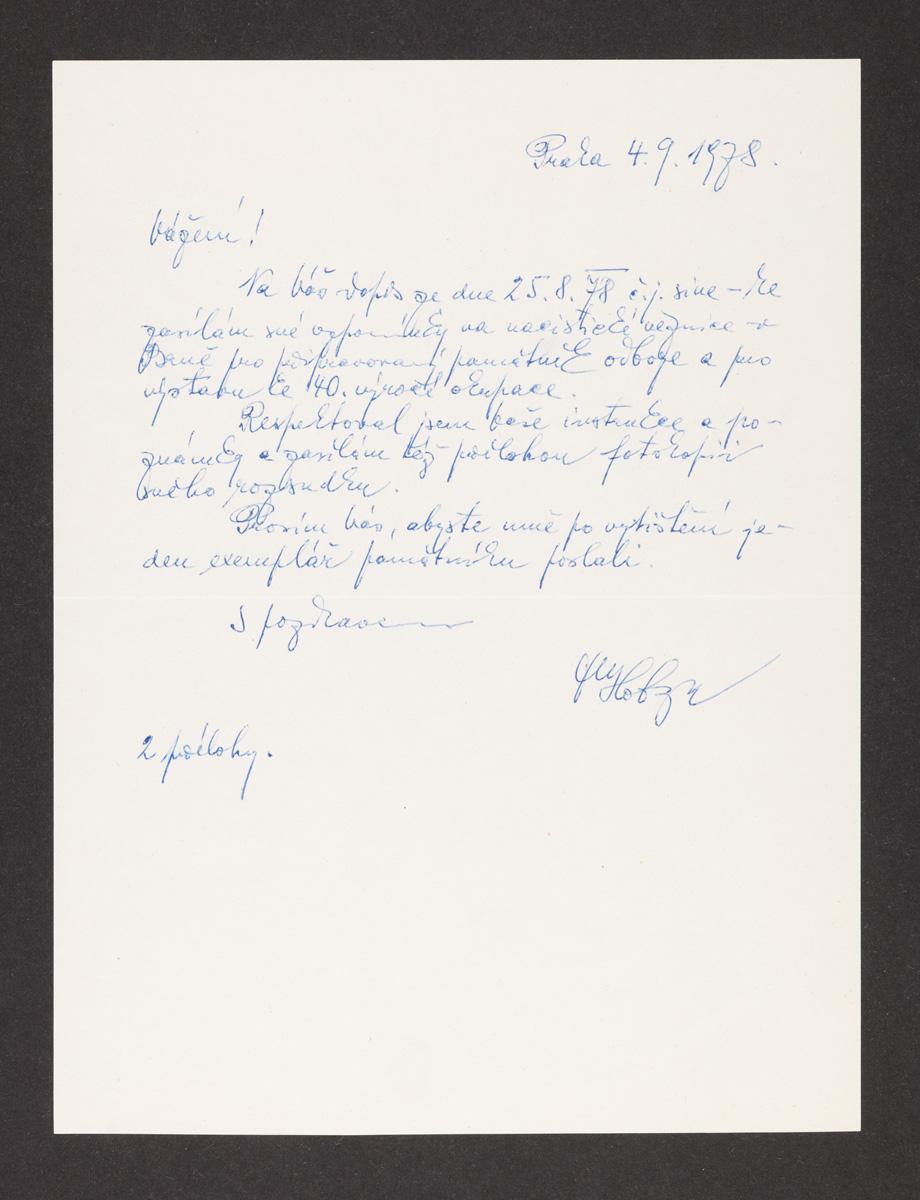 Praha 4.9.1978.
Vážení!
Na Váš dopis ze dne 25.8.78 č.j. sine - Ke
zasílám své vzpomínky na nacistické věznice v
Brně pro připravovaný památník odboje a pro
výstavu k 40. výročí okupace.
Respektoval jsem vaše instrukce a po-
známky a zasílám též přílohou fotokopii
svého rozsudku.
Prosím Vás, abyste mně po vytištění je-
den exemplář památníku poslali.
S pozdravem
Hobza
2 přílohy.